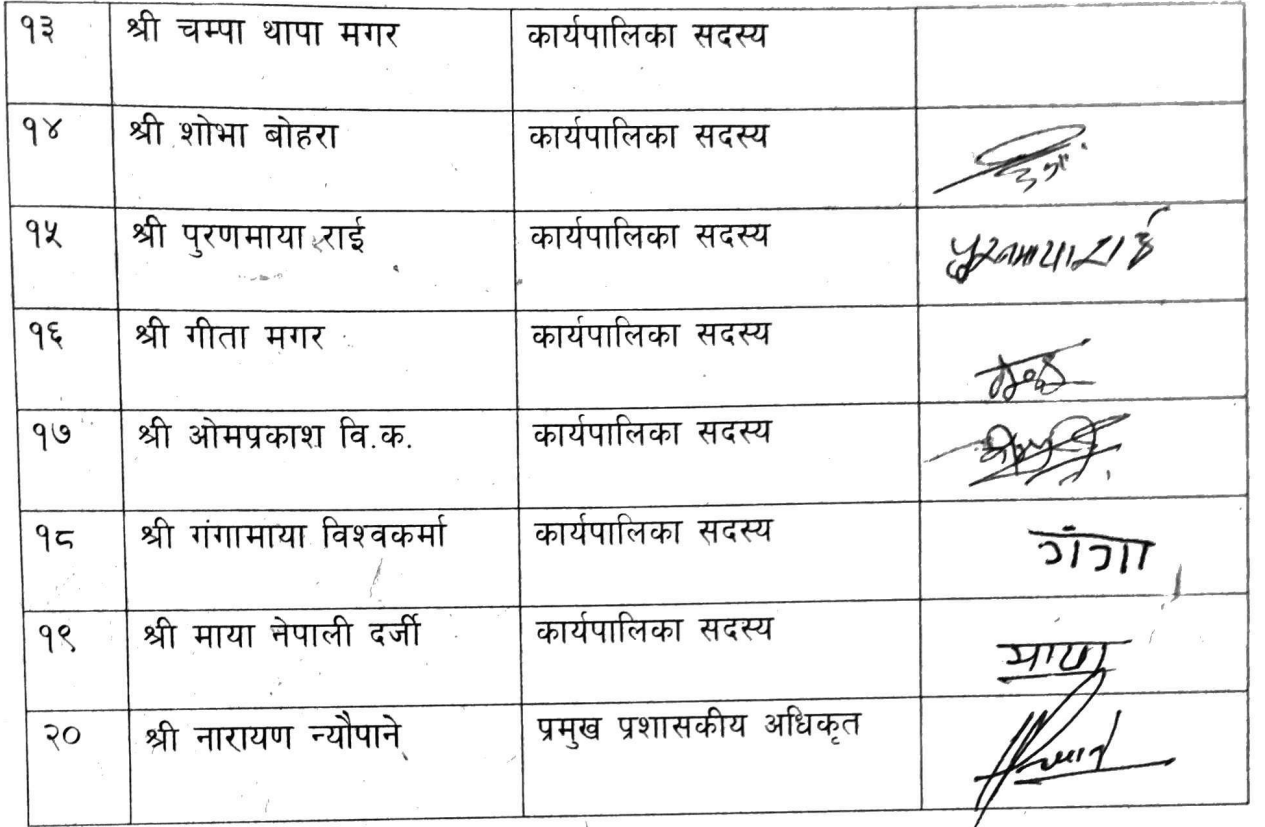 १३ श्री चम्पा थापा मगर कार्यपालिका सदस्य
१४ श्री शोभा बोहरा कार्यपालिका सदस्य
१५ श्री पुरणमाया राई कार्यपालिका सदस्य पुरनमाया राई
१६ श्री गीता मगर कार्यपालिका सदस्य
१७ श्री ओमप्रकाश वि.क. कार्यपालिका सदस्य
१८ श्री गंगामाया विश्वकर्मा कार्यपालिका सदस्य गंगा
१९ श्री माया नेपाली दर्जी कार्यपालिका सदस्य माया
२० श्री नारायण न्यौपाने प्रमुख प्रशासकीय अधिकृत